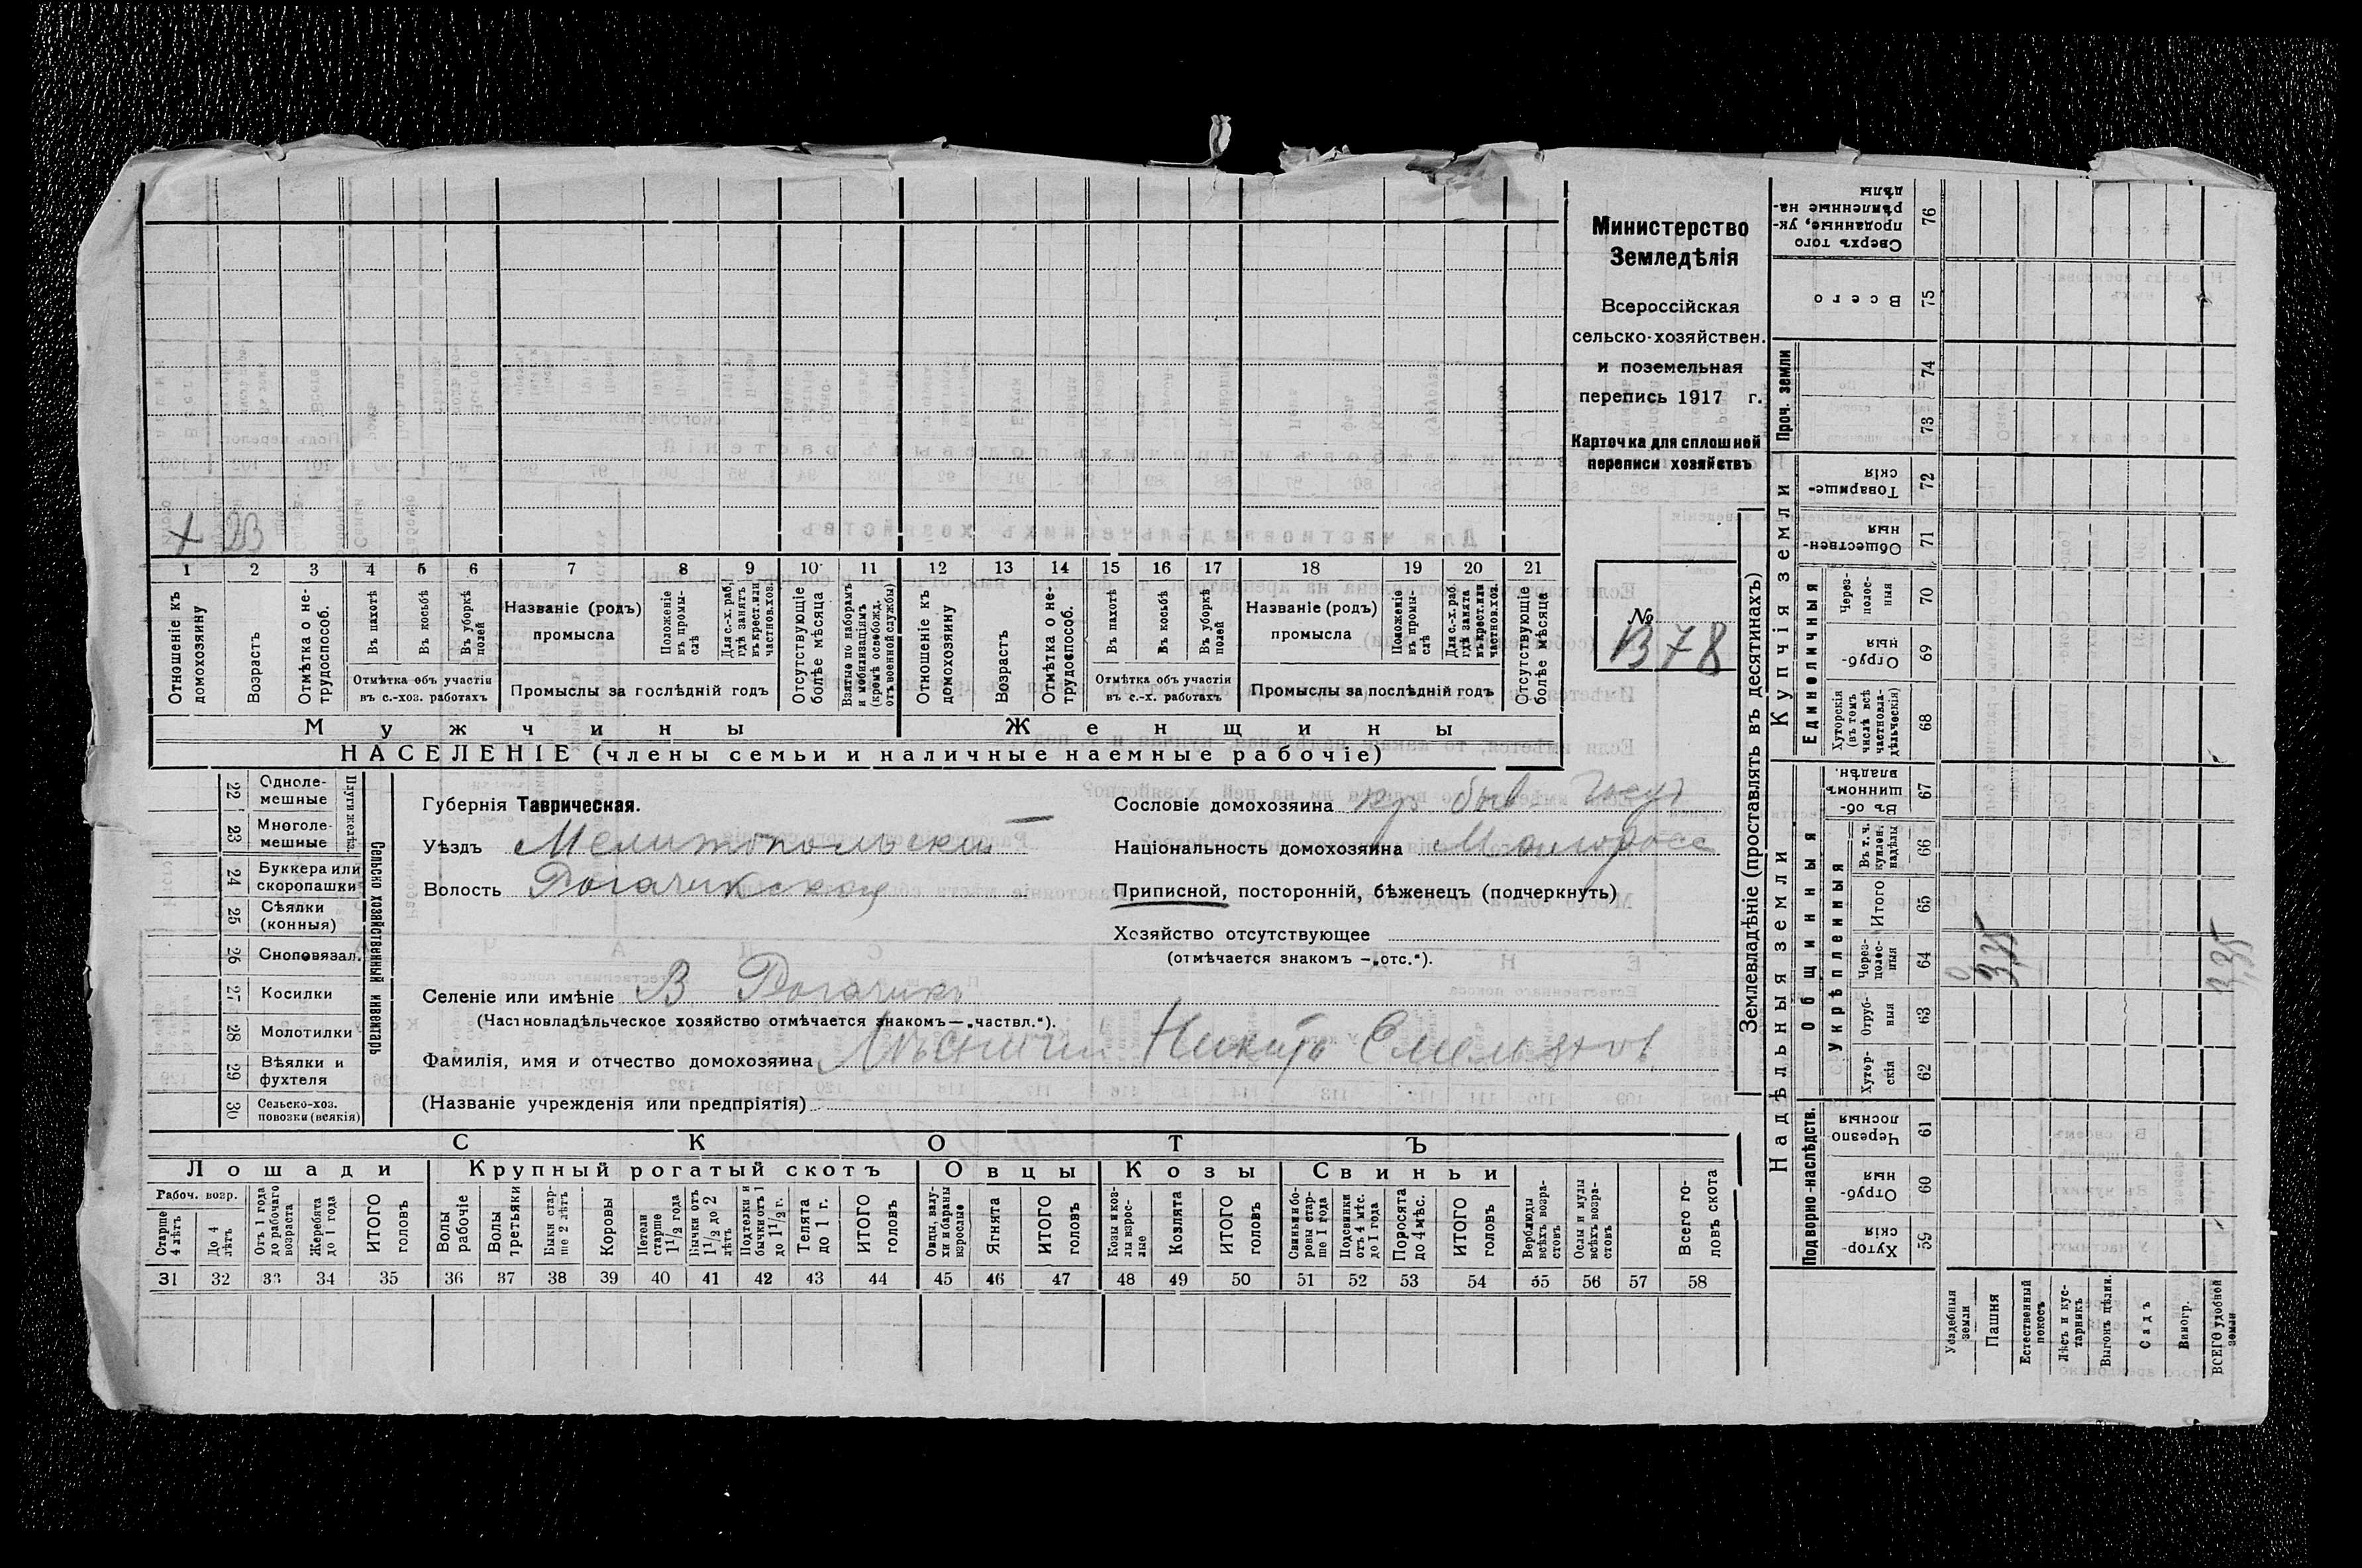 Министерство
Земледѣлія
Всероссійская
сельско-хозяйствен.
и поземельная
перепись 1917 г.
Карточка для сплошной
переписи хозяйствъ
№
1378
+ 23
1 2 3 4 5 6 7 8 9 10 11 12 13 14 15 16 17 18 19 20 21
Отношеніе къ домохозяину
Возрастъ
Отмѣтка о не-трудоспособ.
Въ пахотѣ
Въ косьбѣ
Въ уборкѣ полей
Отмѣтка объ участіи
въ с.-хоз. работахъ
Названіе (родъ)
промысла
Положеніе въ промы-слѣ
Для с.-х. раб, гдѣ занятъ въ крест. или частнов. хоз.
Промыслы за послѣдній годъ
Отсутствующіе болѣе мѣсяца
Взятые по наборамъ и мобилизаціямъ (кромѣ освобожд. отъ военной службы)
Отношеніе къ домохозяину
Возрастъ
Отмѣтка о не-трудоспособ.
Въ пахотѣ
Въ косьбѣ
Въ уборкѣ полей
Отмѣтка объ участіи
въ с.-х. работахъ
Названіе (родъ)
промысла
Положеніе въ промы-слѣ
Для с.-х. раб. гдѣ занята въ крест. или частнов. хоз.
Промыслы за послѣдній годъ
Отсутствующіе болѣе мѣсяца
Мужчины
Женщины
НАСЕЛЕНІЕ (члены семьи и наличные наемные рабочіе)
Сельско хозяйственный инвентарь
Плуги желѣз.
22 Одноле-мешные
23 Многоле-мешные
24 Буккера или скоропашки
25 Сѣялки (конныя)
26 Сноповязал.
27 Косилки
28 Молотилки
29 Вѣялки и фухтеля
30 Сельско-хоз. повозки (всякія)
Губернія Таврическая.
Уѣздъ Мелитопольскій
Волость Рогачикская
Селеніе или имѣніе В Рогачикъ
(Частновладѣльческое хозяйство отмѣчается знакомъ—„частвл.“).
Фамилія, имя и отчество домохозяина Никита Емельянов
(Названіе учрежденія или предпріятія)
Сословіе домохозяина кр быв госуд
Національность домохозяина Малоросс
Приписной, посторонній, бѣженецъ (подчеркнуть)
Хозяйство отсутствующее
(отмѣчается знакомъ —„отс.“).
СКОТЪ
Лошади
Крупный рогатый скотъ
Овцы
Козы
Свиньи
Рабоч. возр.
Старше 4 лѣтъ
До 4 лѣтъ
Отъ 1 года до рабочаго возраста
Жеребята до 1 года
ИТОГО головъ
Волы рабочіе
Волы третьяки
Быки стар-ше 2 лѣтъ
Коровы
Нетели старше 1 1/2 года
Бычки отъ 1 1/2 до 2 лѣтъ
Подтелки и бычки отъ 1 до 1 1/2 г.
Телята до 1 г.
ИТОГО головъ
Овцы, валу-хи и бараны взрослые
Ягнята
ИТОГО головъ
Козы и коз-лы взрос-лые
Козлята
ИТОГО головъ
Свиньи и бо-ровы стар-ше 1 года
Подсвинки отъ 4 мѣс. до 1 года
Поросята до 4 мѣс.
ИТОГО головъ
Верблюды всѣхъ возра-стовъ
Ослы и мулы всѣхъ возра-стовъ
Всего го-ловъ скота
31 32 33 34 35 36 37 38 39 40 41 42 43 44 45 46 47 48 49 50 51 52 53 54 55 56 57 58
Землевладѣніе (проставлять въ десятинахъ)
Надѣльныя земли
Купчія земли
Проч. земли
Подворно-наслѣдств.
Общинныя
Укрѣпленныя
Единоличныя
Сверхъ того проданные, ук-рѣпленные на-дѣлы 76
Всего 75
74
73
Товарище-скія 72
Обществен-ныя 71
Через-полос-ныя 70
Отруб-ныя 69
Хуторскія (въ томъ числѣ всѣ частновла-дѣльческія) 68
Въ об-щинномъ владѣн. 67
Въ т. ч. куплен. надѣлы 66
Итого 65
Через-полос-ныя 64
Отруб-ныя 63
Хутор-скія 62
Черезпо лосныя 61
Отруб-ныя 60
Хутор-скія 59
Усадебныя земли
Пашня
Естественный покосъ
Лѣсъ и кус-тарникъ
Выгонъ цѣлин.
Садъ
Виногр.
ВСЕГО удобной земли
3,35
3,35